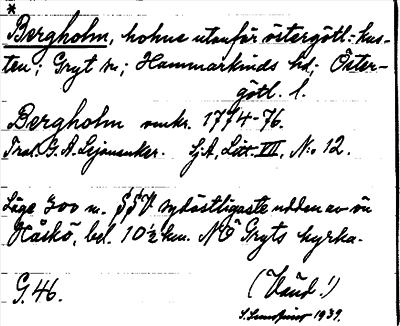 *
Bergholm, holme utanför östergötl.-kus-
ten; Gryt sn; Hammarkinds hd; Öster-
götl. l.
Bergholm omkr. 1774-76.
Trol. G. A. Lejonanker. Sj.A, Litt. VII, N:o 12.
Läge 700 m. SSV sydöstligaste udden av ön
Håskö, bel. 10½ km. NÖ Gryts kyrka.
G. 46.
(Vänd!)
1939.